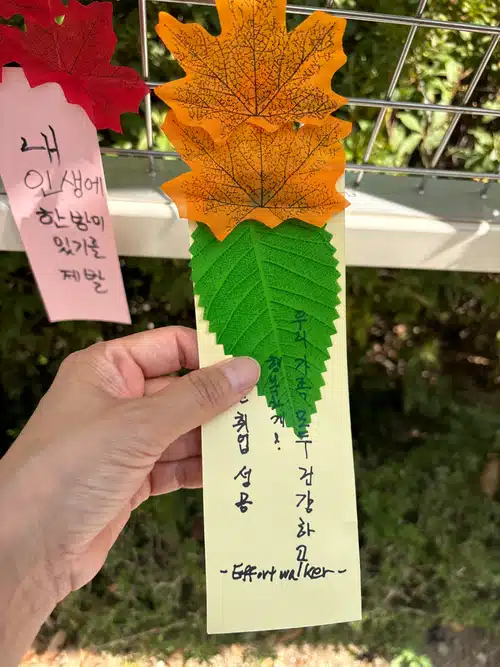 내
인생에
한방이
있기를
제발
우리 가족 모두 건강하고
행복하게!
취업 성공
-Effortwalker-